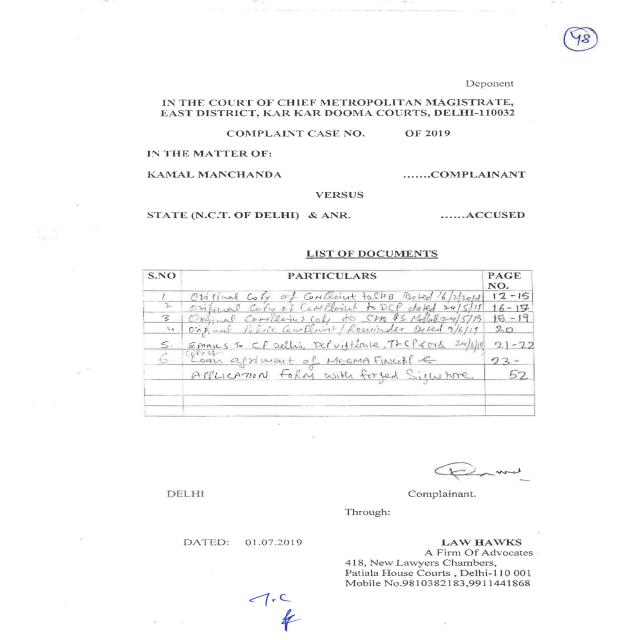 48
Deponent
IN THE COURT OF CHIEF METROPOLITAN MAGISTRATE,
EAST DISTRICT, KAR KAR DOOMA COURTS, DELHI-110032
COMPLAINT CASE NO. OF 2019
IN THE MATTER OF:
KAMAL MANCHANDA .......COMPLAINANT
VERSUS
STATE (N.C.T. OF DELHI) & ANR. ......ACCUSED
LIST OF DOCUMENTS
S.NO PARTICULARS PAGE NO.
1 Original Copy of Complaint to Dated 12-15
2 Original Copy of Complaint to DCP dated 24/5/19 16-17
3 Original Copy to 18-19
4 Original Police Complaint / Reminder Dated 20
5. EMAILS TO CP Delhi, DCP 21-22
6. Loan agriment of 23-
APPLICATION FORM with forged Signature 52
DELHI Complainant.
Through:
DATED: 01.07.2019 LAW HAWKS
A Firm Of Advocates
418, New Lawyers Chambers,
Patiala House Courts , Delhi-110 001
Mobile No.9810382183,9911441868
T.C